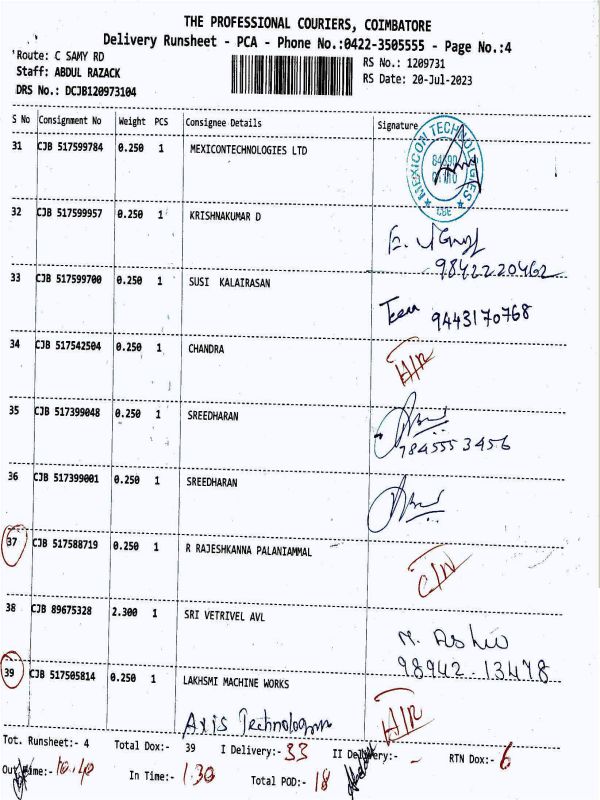 THE PROFESSIONAL COURIERS, COIMBATORE
Delivery Runsheet - PCA - Phone No.:0422-3505555 - Page No.:4
Route: C SAMY RD
RS No.: 1209731
Staff: ABDUL RAZACK
RS Date: 20-Jul-2023
DRS No.: DCJB120973104
S No Consignment No Weight PCS Consignee Details Signature
31 CJB 517599784 0.250 1 MEXICONTECHNOLOGIES LTD
MEXICON TECHNOLOGIES
CBE
32 CJB 517599957 0.250 1 KRISHNAKUMAR D
9842220462
33 CJB 517599700 0.250 1 SUSI KALAIRASAN
9443170768
34 CJB 517542504 0.250 1 CHANDRA
A/R
35 CJB 517399048 0.250 1 SREEDHARAN
7845553456
36 CJB 517399001 0.250 1 SREEDHARAN
37 CJB 517588719 0.250 1 R RAJESHKANNA PALANIAMMAL
C/N
38 CJB 89675328 2.300 1 SRI VETRIVEL AVL
98942-13478
39 CJB 517505814 0.250 1 LAKHSMI MACHINE WORKS
A/R
Axis
Tot. Runsheet:- 4 Total Dox:- 39 I Delivery:- 33 II Delivery:- - RTN Dox:- 6
Out Time:- 10.40 In Time:- 1.30 Total POD:- 18